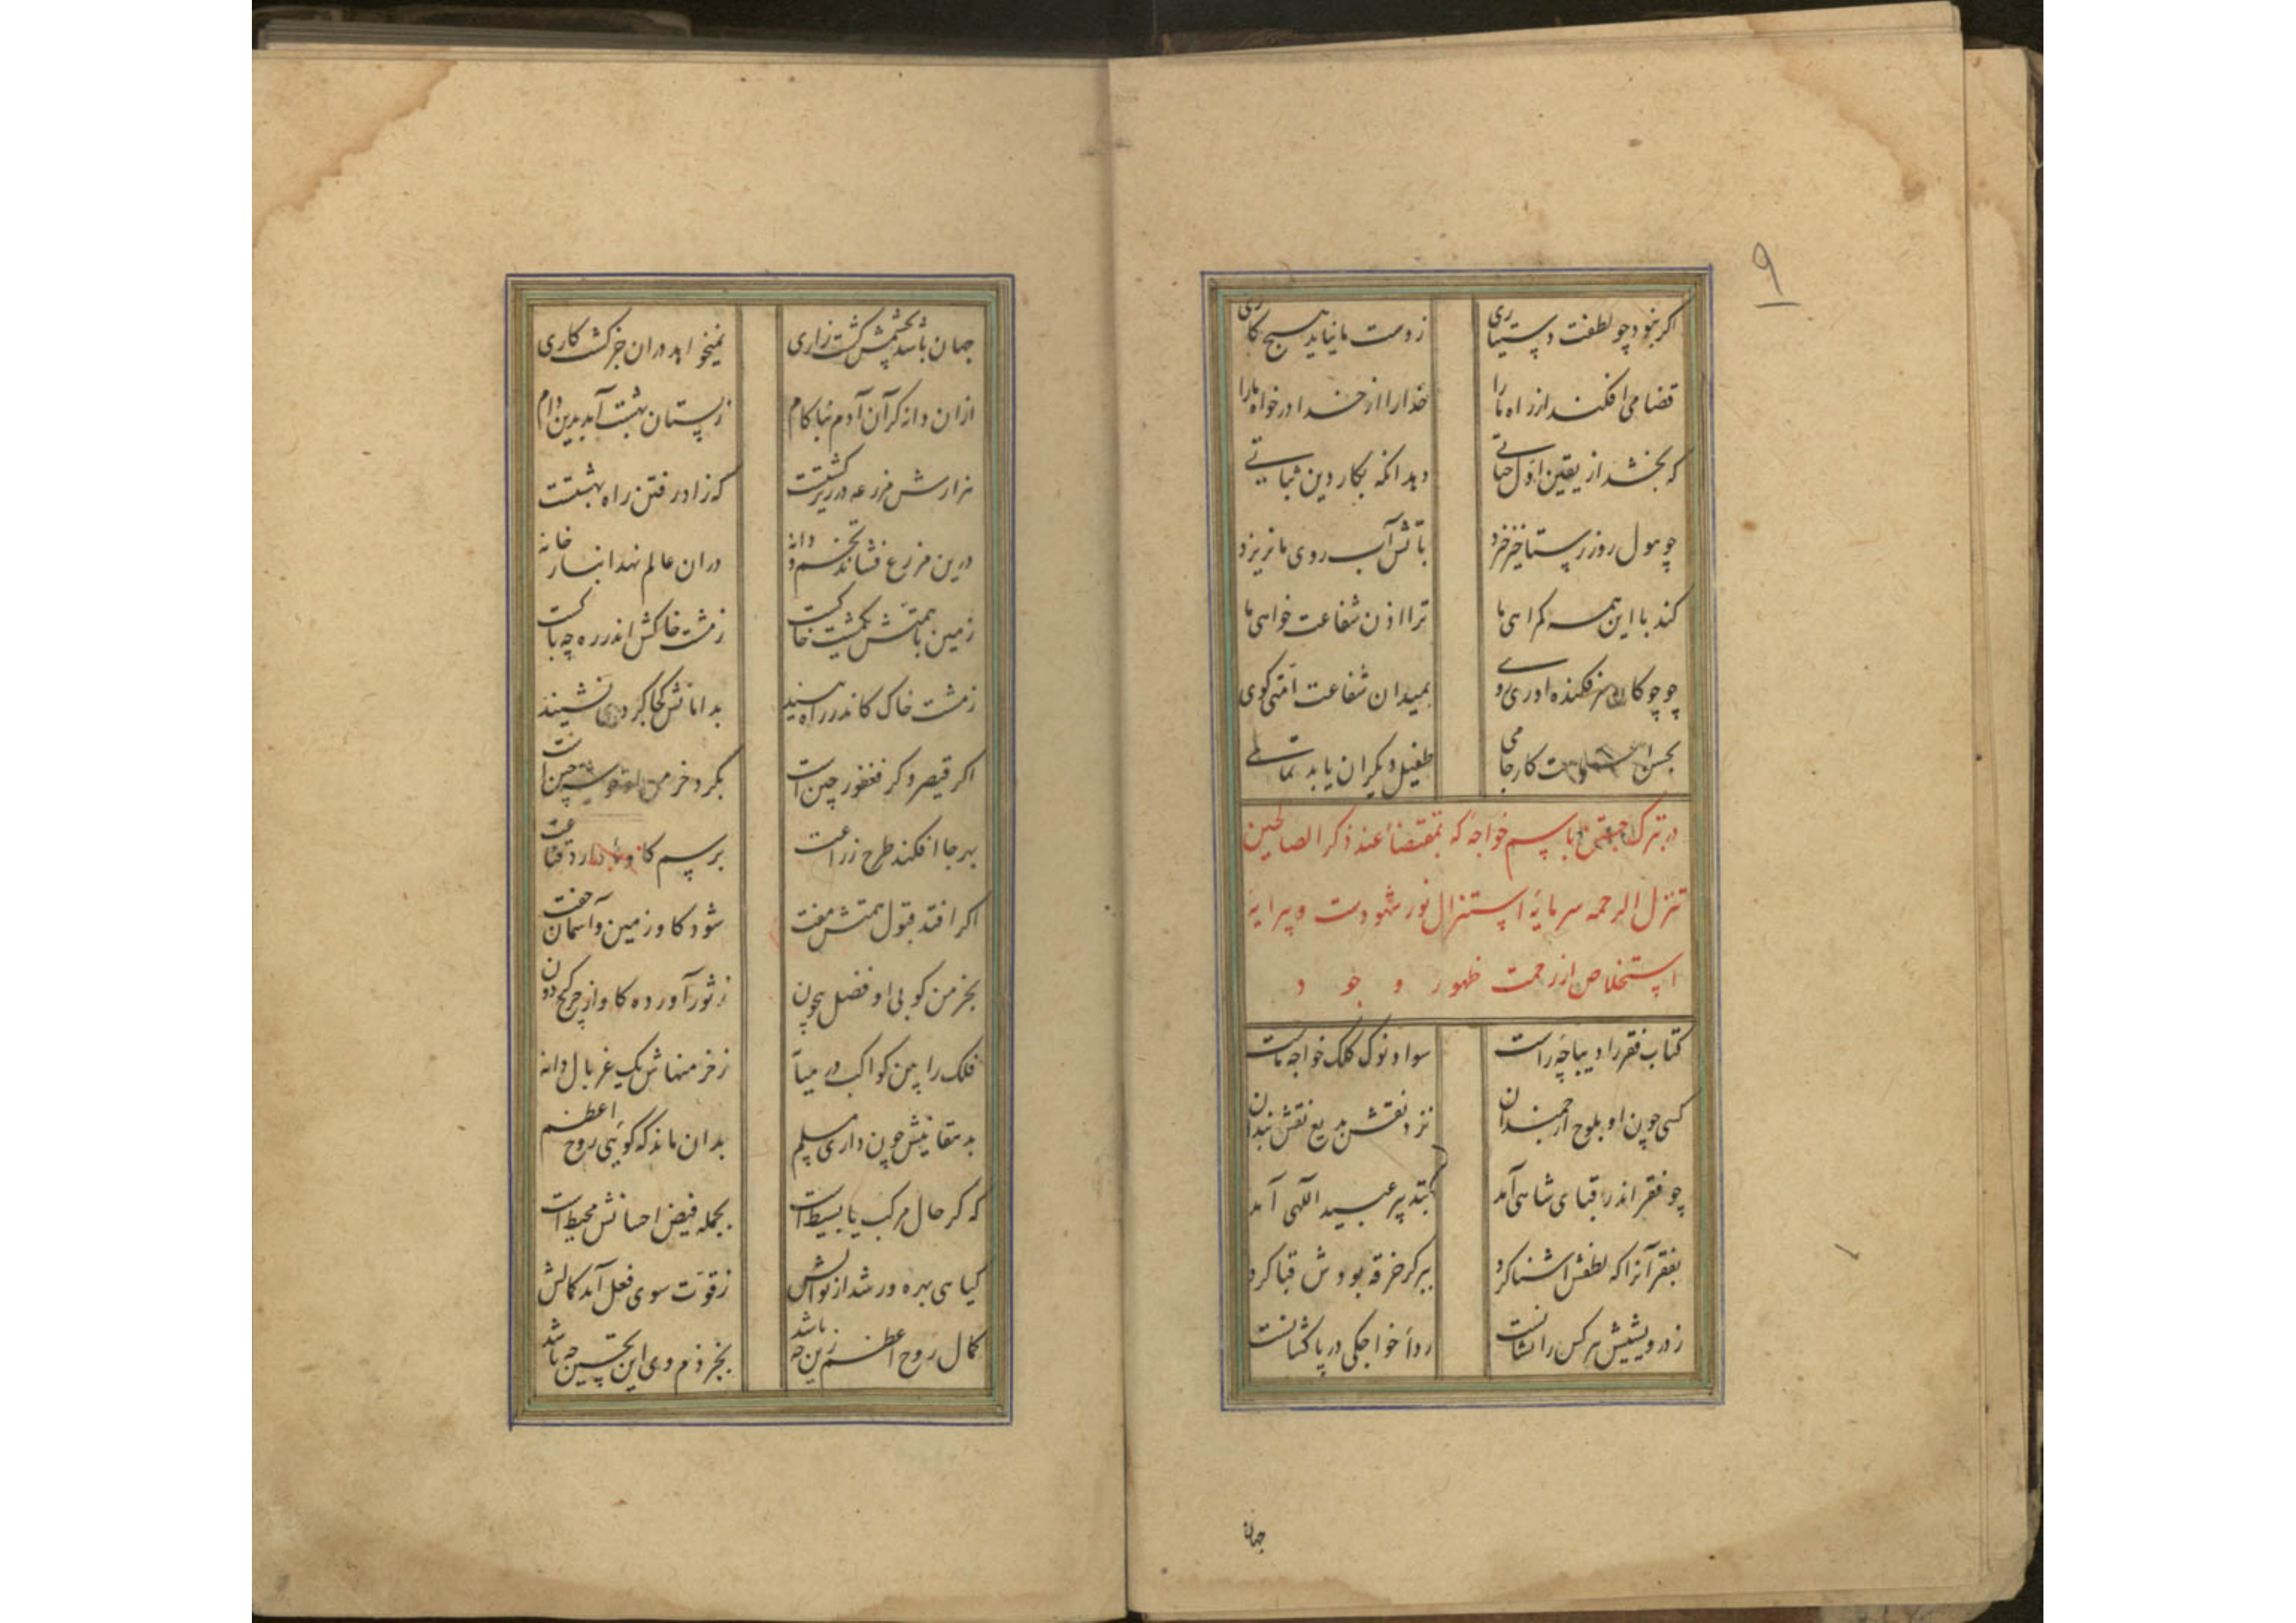 ۹
اگر نبود چو لطفت دستیاری ز دست ما نیاید هیچ کاری
قضا می افکند از راه ما را خدا را از خدا درخواه ما را
که بخشد از یقین اول حیاتی دهد آنگه بکار دین ثباتی
چو هول روز رستاخیز خیزد بآتش آب روی ما نریزد
کند با این همه گمراهی ما ترا اذن شفاعت خواهی ما
چو چوگان سر فکنده آوری روی بمیدان شفاعت امتی گوی
بحسن کار جامی طفیل دیگران یابد تمامی
در تبرک جستن باسم خواجه که بمقتضاء عند ذکر الصالحین
تنزل الرحمه سرمایهٔ استنزال نور شهودست و پیرایهٔ
استخلاص از زحمت ظهور وجود
کتاب فقر را دیباچه راست سواد نوک کلک خواجه ماست
کسی چون او بلوح ارجمندان نزد نقش بدیع نقشبندان
چو فقر اندر قبای شاهی آمد بتدبیر عبید اللهی آمد
بفقر آنرا که لطفش آشنا کرد ببر گر خرقه بودش قبا کرد
ز درویشیش هر کس را نشانست رداء خواجگی در پا کشانست
جهان
جهان باشد بچشمش کشت زاری نمیخواهد دران جز کشت کاری
ازان دانه کز آن آدم بناکام ز بستان بهشت آمد بدین دام
هزارش مزرعه در زیر کشتست که زاد رفتن راه بهشتست
درین مزرع فشاند تخم و دانه دران عالم نهد انبار خانه
زمین با همتش یکمشت خاکست ز مشت خاکش اندر ره چه باکست
ز مشت خاک کاندر راه بیند بدامانش کجا گردی نشیند
اگر قیصر و گر فغفور چین است بگرد خرمن او خوشه چین است
بهر جا افکند طرح زراعت برسم گاو دارد قناعت
اگر افتد قبول همتش مفت شود گاو زمین و آسمان جفت
بخرمن کوبی او فضل بیچون ز ثور آورده گاو از چرخ گردون
فلک را بین کواکب در میانه ز خرمنهاش یک غربال دانه
بدهقانیش چون داری مسلم بدان ماند که گویی روح اعظم
که گر حال مرکب یا بسیط است بجمله فیض احسانش محیط است
گیاهی بهره ور شد از نوالش ز قوت سوی فعل آمد کمالش
کمال روح اعظم زین چه باشد بجز ذم وی این تحسین چه باشد